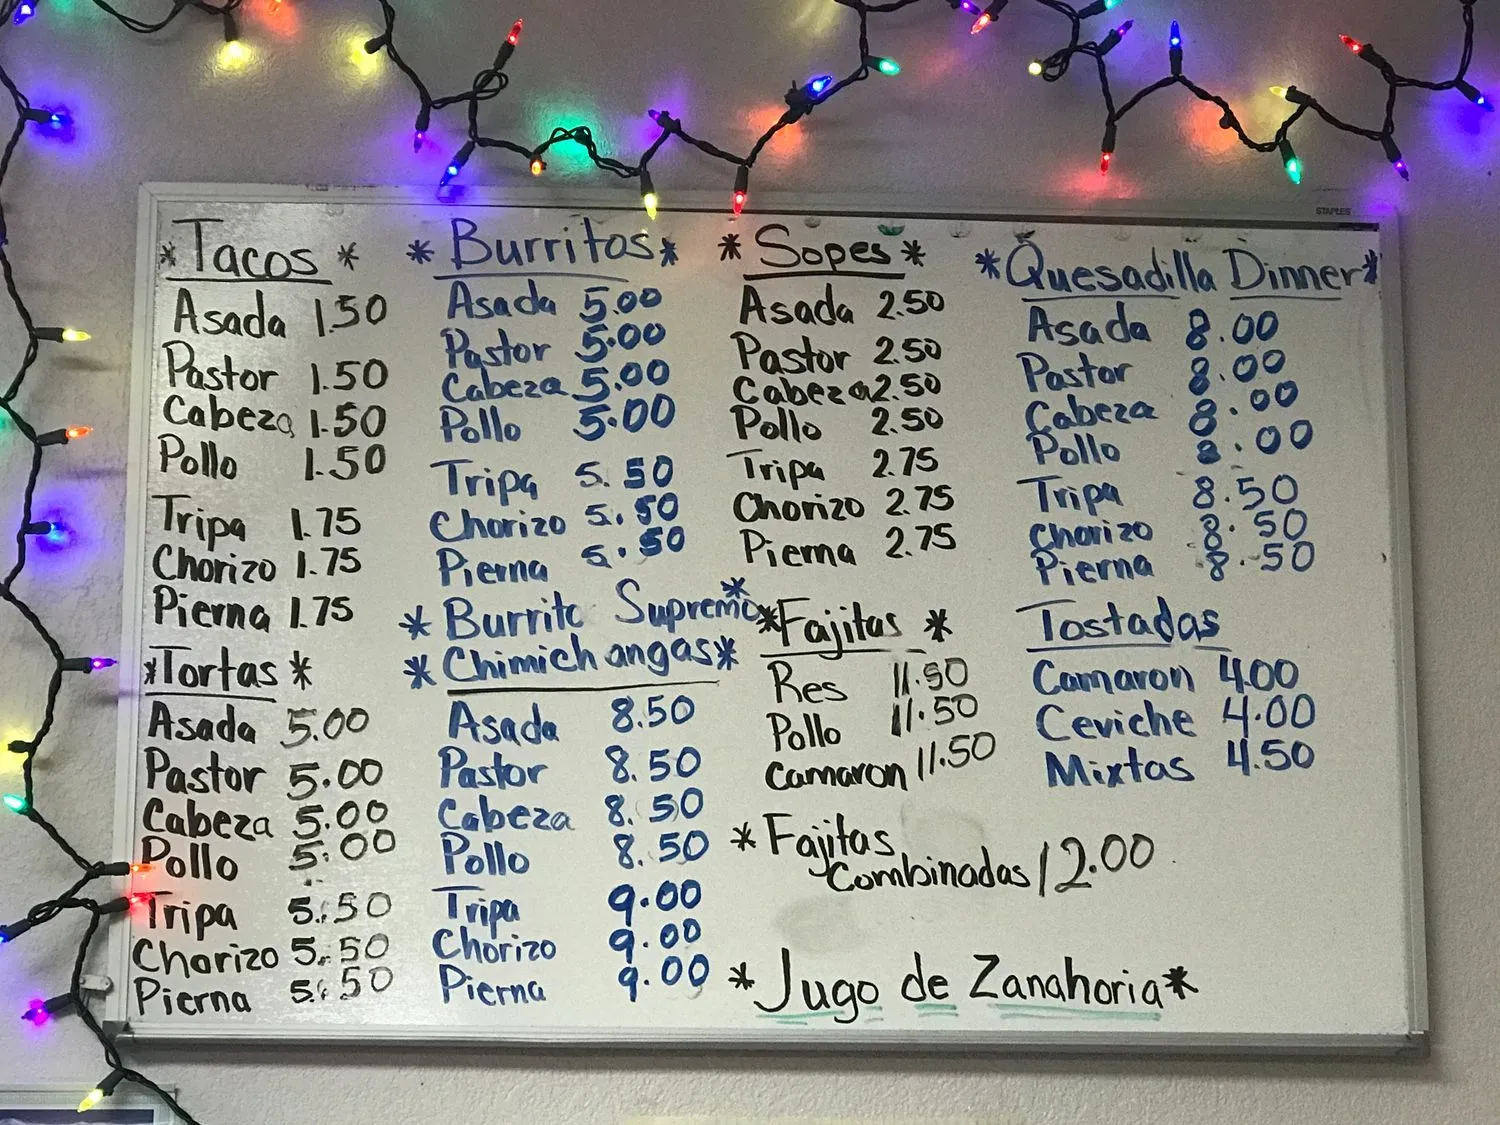 STAPLES
* Tacos *
Asada 1.50
Pastor 1.50
Cabeza 1.50
Pollo 1.50
Tripa 1.75
Chorizo 1.75
Pierna 1.75
* Tortas *
Asada 5.00
Pastor 5.00
Cabeza 5.00
Pollo 5.00
Tripa 5.50
Chorizo 5.50
Pierna 5.50
* Burritos *
Asada 5.00
Pastor 5.00
Cabeza 5.00
Pollo 5.00
Tripa 5.50
Chorizo 5.50
Pierna 5.50
* Burrito Supremo *
* Chimichangas *
Asada 8.50
Pastor 8.50
Cabeza 8.50
Pollo 8.50
Tripa 9.00
Chorizo 9.00
Pierna 9.00
* Sopes *
Asada 2.50
Pastor 2.50
Cabeza 2.50
Pollo 2.50
Tripa 2.75
Chorizo 2.75
Pierna 2.75
* Fajitas *
Res 11.50
Pollo 11.50
Camaron 11.50
* Fajitas
Combinadas 12.00
* Jugo de Zanahoria *
* Quesadilla Dinner *
Asada 8.00
Pastor 8.00
Cabeza 8.00
Pollo 8.00
Tripa 8.50
Chorizo 8.50
Pierna 8.50
Tostadas
Camaron 4.00
Ceviche 4.00
Mixtas 4.50